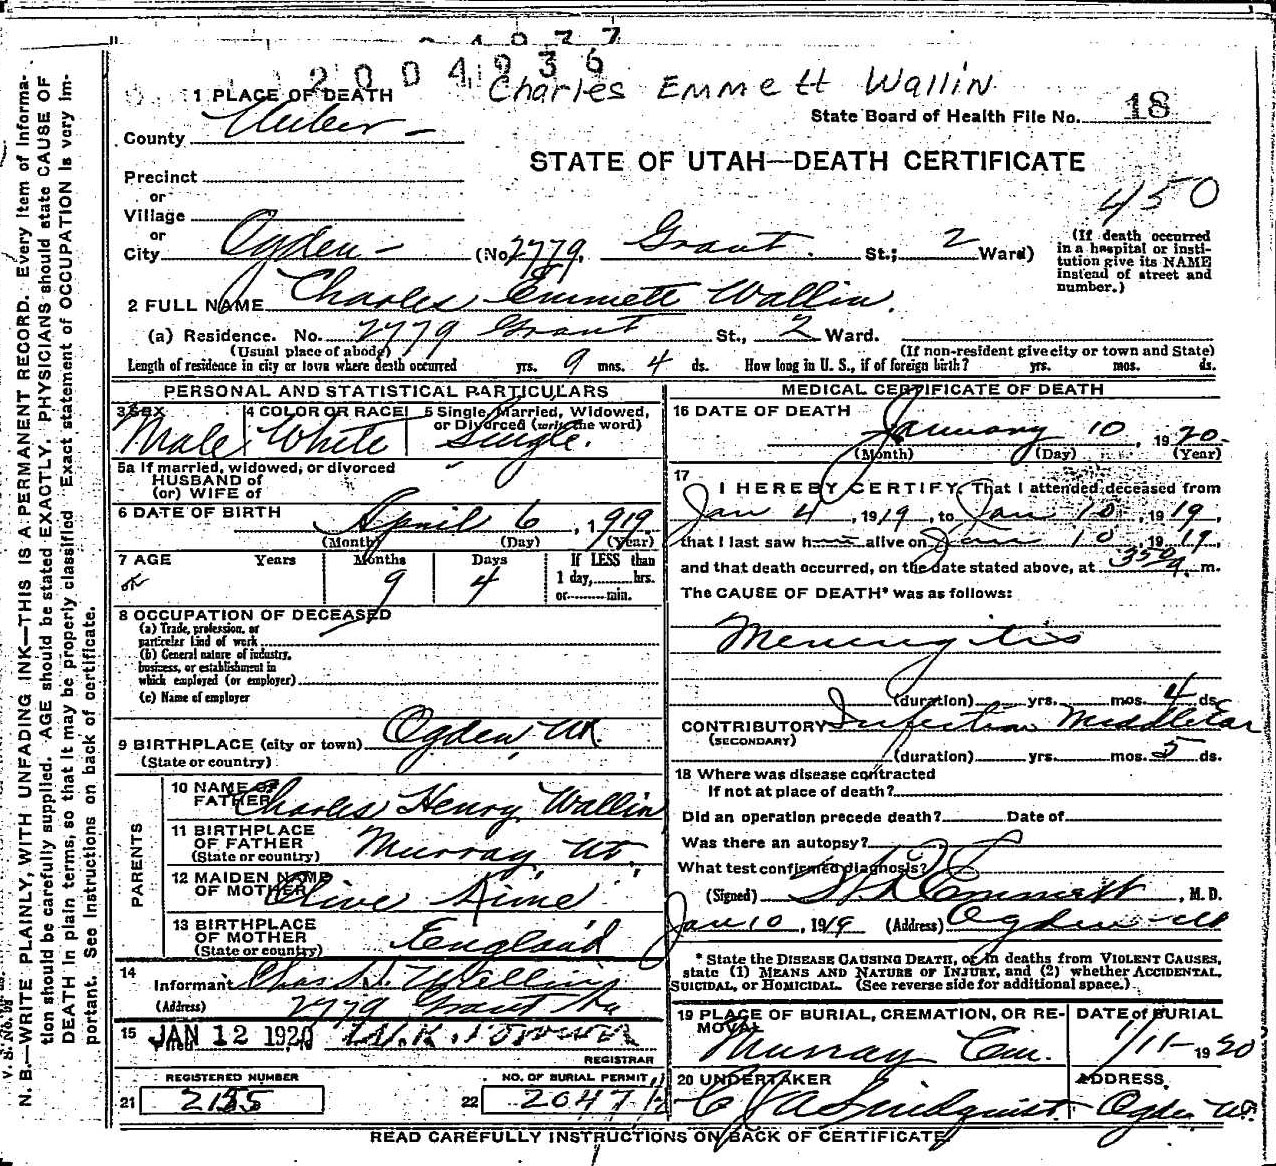 2004936
Charles Emmett Wallin
1 PLACE OF DEATH
State Board of Health File No. 18
County Weber
STATE OF UTAH—DEATH CERTIFICATE
Precinct
or
Village
450
or
City Ogden (No. 2779 Grant St.; 2 Ward)
(If death occurred in a hospital or institution give its NAME instead of street and number.)
2 FULL NAME Charles Emmett Wallin
(a) Residence. No. 2779 Grant St., 2 Ward.
(Usual place of abode) (If non-resident give city or town and State)
Length of residence in city or town where death occurred yrs. 9 mos. 4 ds. How long in U. S., if of foreign birth? yrs. mos. ds.
PERSONAL AND STATISTICAL PARTICULARS
3 SEX Male
4 COLOR OR RACE White
5 Single, Married, Widowed, or Divorced (write the word) Single.
5a If married, widowed, or divorced
HUSBAND of
(or) WIFE of
6 DATE OF BIRTH April 6, 1919
(Month) (Day) (Year)
7 AGE Years Months 9 Days 4 If LESS than 1 day, hrs. or min.
8 OCCUPATION OF DECEASED
(a) Trade, profession, or particular kind of work
(b) General nature of industry, business, or establishment in which employed (or employer)
(c) Name of employer
9 BIRTHPLACE (city or town) Ogden, Ut.
(State or country)
PARENTS
10 NAME OF FATHER Charles Henry Wallin
11 BIRTHPLACE OF FATHER Murray, Ut.
(State or country)
12 MAIDEN NAME OF MOTHER Olive
13 BIRTHPLACE OF MOTHER England
(State or country)
14 Informant Chas H. Walling
(Address) 2779 Grant Av
15 Filed JAN 12 1920
REGISTRAR
REGISTERED NUMBER
21 2155
NO. OF BURIAL PERMIT
22 2047 1/2
MEDICAL CERTIFICATE OF DEATH
16 DATE OF DEATH
January 10, 1920
(Month) (Day) (Year)
17 I HEREBY CERTIFY, That I attended deceased from
Jan 4, 1919, to Jan 10, 1919,
that I last saw h alive on Jan 10, 1919,
and that death occurred, on the date stated above, at 350 a. m.
The CAUSE OF DEATH* was as follows:
Meningitis
(duration) yrs. mos. 4 ds.
CONTRIBUTORY Infection Middle Ear
(SECONDARY)
(duration) yrs. mos. 5 ds.
18 Where was disease contracted
If not at place of death?
Did an operation precede death? Date of
Was there an autopsy?
What test confirmed diagnosis?
(Signed) Emmett, M. D.
Jan 10, 1919 (Address) Ogden Ut
* State the DISEASE CAUSING DEATH, or in deaths from VIOLENT CAUSES, state (1) MEANS AND NATURE OF INJURY, and (2) whether ACCIDENTAL, SUICIDAL, or HOMICIDAL. (See reverse side for additional space.)
19 PLACE OF BURIAL, CREMATION, OR REMOVAL Murray Cem.
DATE OF BURIAL 1/11 1920
20 UNDERTAKER Lindquist
ADDRESS, Ogden Ut.
READ CAREFULLY INSTRUCTIONS ON BACK OF CERTIFICATE
N. B.—WRITE PLAINLY, WITH UNFADING INK—THIS IS A PERMANENT RECORD. Every item of information should be carefully supplied. AGE should be stated EXACTLY. PHYSICIANS should state CAUSE OF DEATH in plain terms, so that it may be properly classified. Exact statement of OCCUPATION is very important. See instructions on back of certificate.